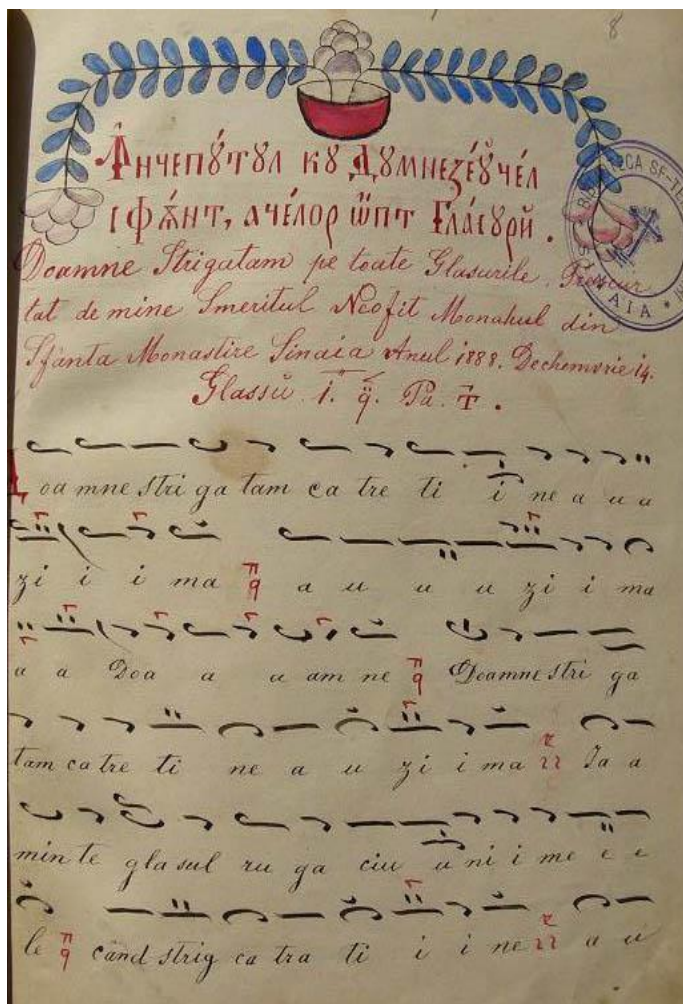 8
Ꙟнчепу́тул ку Думнезе́ꙋ чел
сфѫ́нт, а че́лор ѡ҆пт Гла́сурй.
Doamne Strigatam pe toate Glasurile. Prescur
tat de mine Smeritul Neofit Monahul din
Sfânta Monastire Sinaia Anul 1888. Dechemvrie 14.
Glassŭ. 1. q̈. Pa.
Доamne stri ga tam ca tre ti i ne a u a
zi i i ma π q a u u u zi i ma
a a Doa a u am ne π q Doamne stri ga
tam ca tre ti ne a u zi i ma Ia a
min te glasul ru ga ciu u ni i me e e
le π q când strig ca tra ti i i ne a u
SINAIA